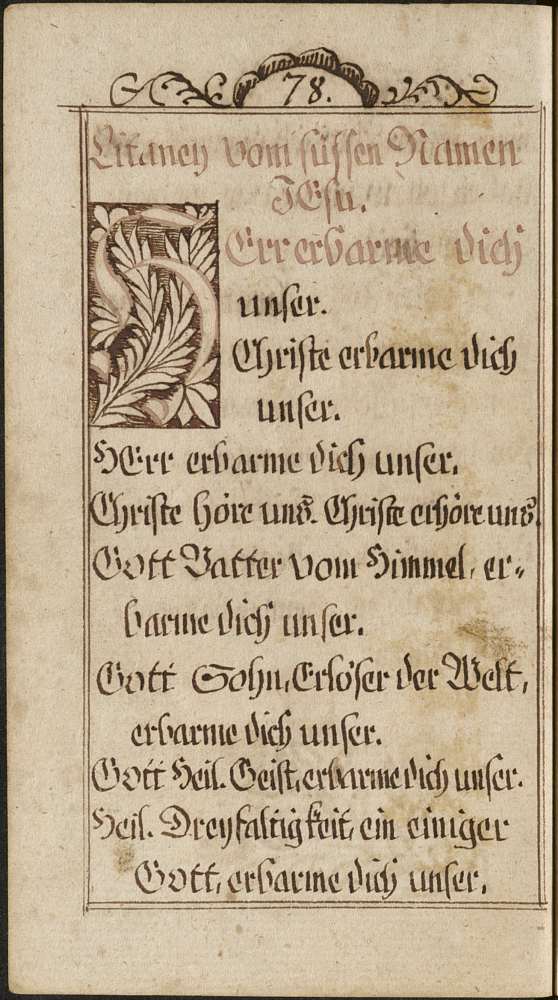 78.
Litaney vom süssen Namen
JEsu.
HErr erbarme dich
unser.
Christe erbarme dich
unser.
HErr erbarme dich unser.
Christe höre uns. Christe erhöre uns.
Gott Vatter vom Himmel, er-
barme dich unser.
Gott Sohn, Erlöser der Welt,
erbarme dich unser.
Gott Heil. Geist, erbarme dich unser.
Heil. Dreyfaltigkeit, ein einiger
Gott, erbarme dich unser.